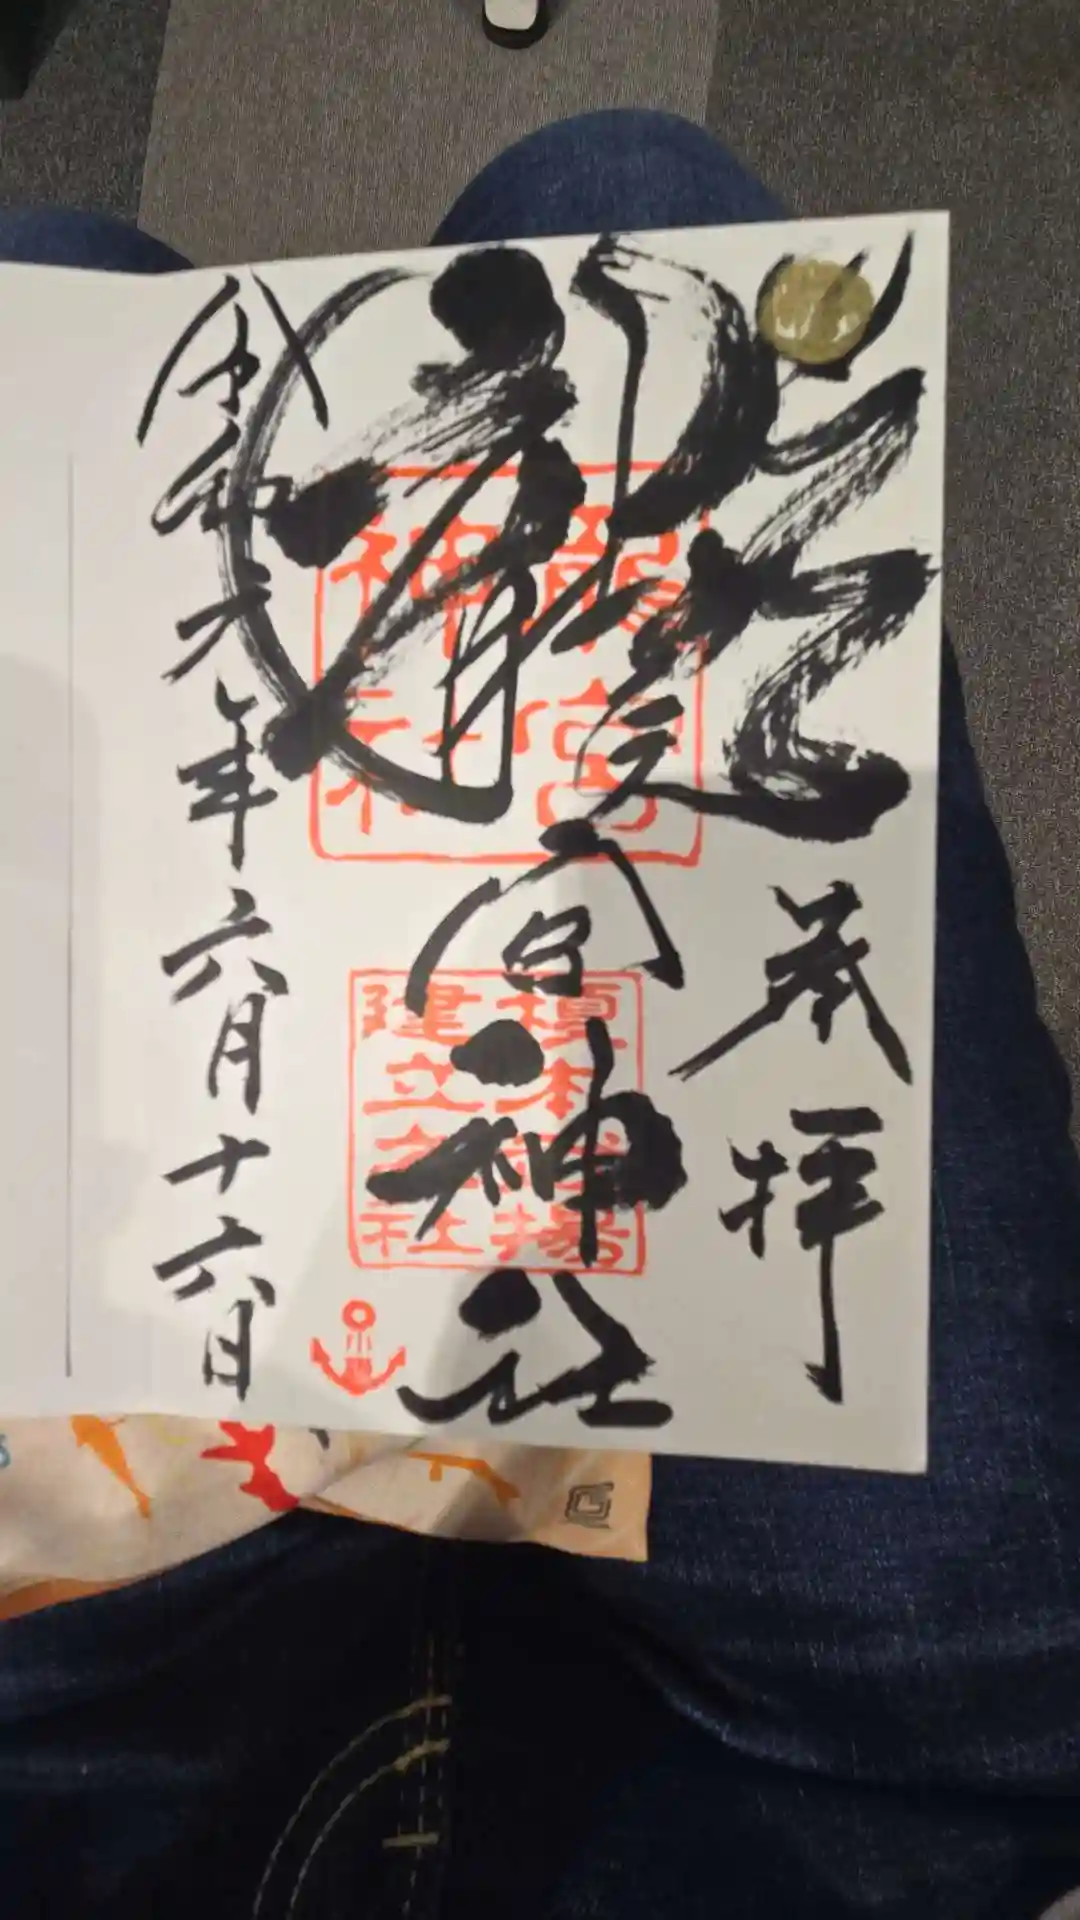 奉拝
龍宮神社
龍宮
神社
榎本武揚
建立之社
令和六年六月十六日